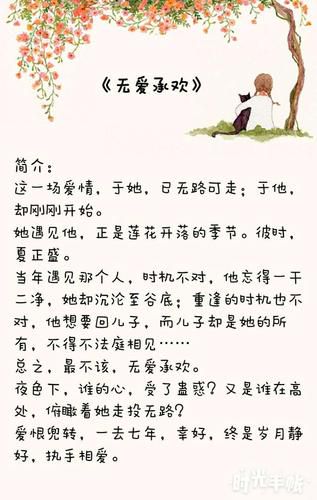 《无爱承欢》
简介：
这一场爱情，于她，已无路可走；于他，
却刚刚开始。
她遇见他，正是莲花开落的季节。彼时，
夏正盛。
当年遇见那个人，时机不对，他忘得一干
二净，她却沉沦至谷底；重逢的时机也不
对，他想要回儿子，而儿子却是她的所
有，不得不法庭相见……
总之，最不该，无爱承欢。
夜色下，谁的心，受了蛊惑？又是谁在高
处，俯瞰着她走投无路？
爱恨兜转，一去七年，幸好，终是岁月静
好，执手相爱。
时光手帐